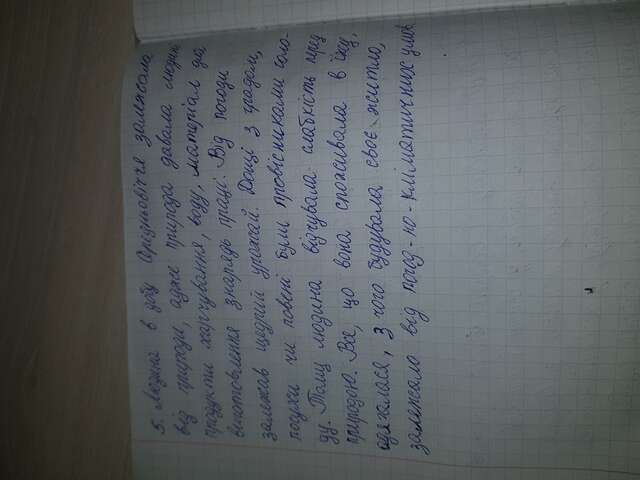 5. Людина в добу Середньовіччя залежала
від природи, адже природа давала людині
продукти харчування, воду, матеріал для
виготовлення знарядь праці. Від погоди
залежав щедрий урожай. Дощі з градом,
посухи чи повені були провісниками голо-
ду. Тому людина відчувала слабкість перед
природою. Все, що вона споживала в їжу,
одягалася, з чого будувала своє житло,
залежало від погод-но-кліматичних умов.